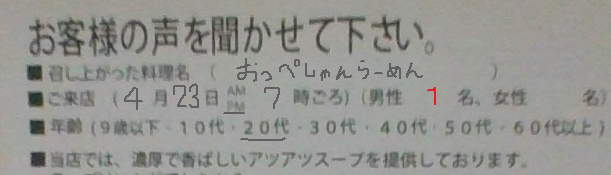 お客様の声を聞かせて下さい。
■召し上がった料理名 ( おっぺしゃんらーめん )
■ご来店 (4月23日 AM PM 7時ごろ) (男性 1名、女性 名)
■年齢 (9歳以下・10代・20代・30代・40代・50代・60代以上)
■当店では、濃厚で香ばしいアツアツスープを提供しております。